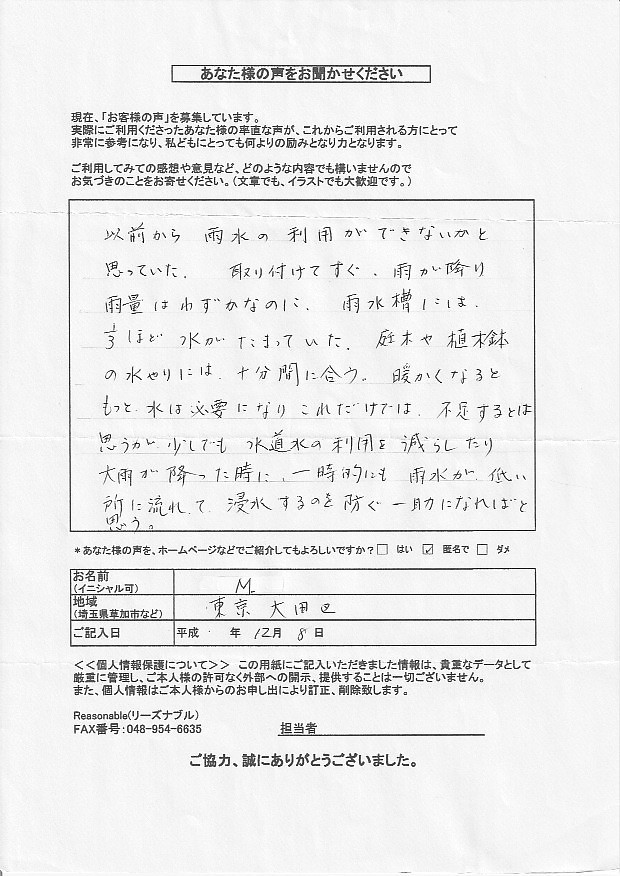 あなた様の声をお聞かせください
現在、「お客様の声」を募集しています。
実際にご利用くださったあなた様の率直な声が、これからご利用される方にとって
非常に参考になり、私どもにとっても何よりの励みとなり力となります。
ご利用してみての感想や意見など、どのような内容でも構いませんので
お気づきのことをお寄せください。（文章でも、イラストでも大歓迎です。）
以前から 雨水の利用ができないかと
思っていた。 取り付けてすぐ、雨が降り
雨量はわずかなのに、雨水槽には、
1/3ほど水がたまっていた。庭木や植木鉢
の水やりには、十分間に合う。暖かくなると
もっと水は必要になりこれだけでは、不足するとは
思うが、少しでも水道水の利用を減らしたり
大雨が降った時に、一時的にも雨水が、低い
所に流れて、浸水するのを防ぐ一助になればと
思う。
＊あなた様の声を、ホームページなどでご紹介してもよろしいですか？□ はい ☑ 匿名で □ ダメ
お名前
（イニシャル可） M.
地域
（埼玉県草加市など） 東京 大田区
ご記入日 平成 年 12月 8日
＜＜個人情報保護について＞＞ この用紙にご記入いただきました情報は、貴重なデータとして
厳重に管理し、ご本人様の許可なく外部への開示、提供することは一切ございません。
また、個人情報はご本人様からのお申し出により訂正、削除致します。
Reasonable(リーズナブル)
FAX番号：048-954-6635 担当者
ご協力、誠にありがとうございました。